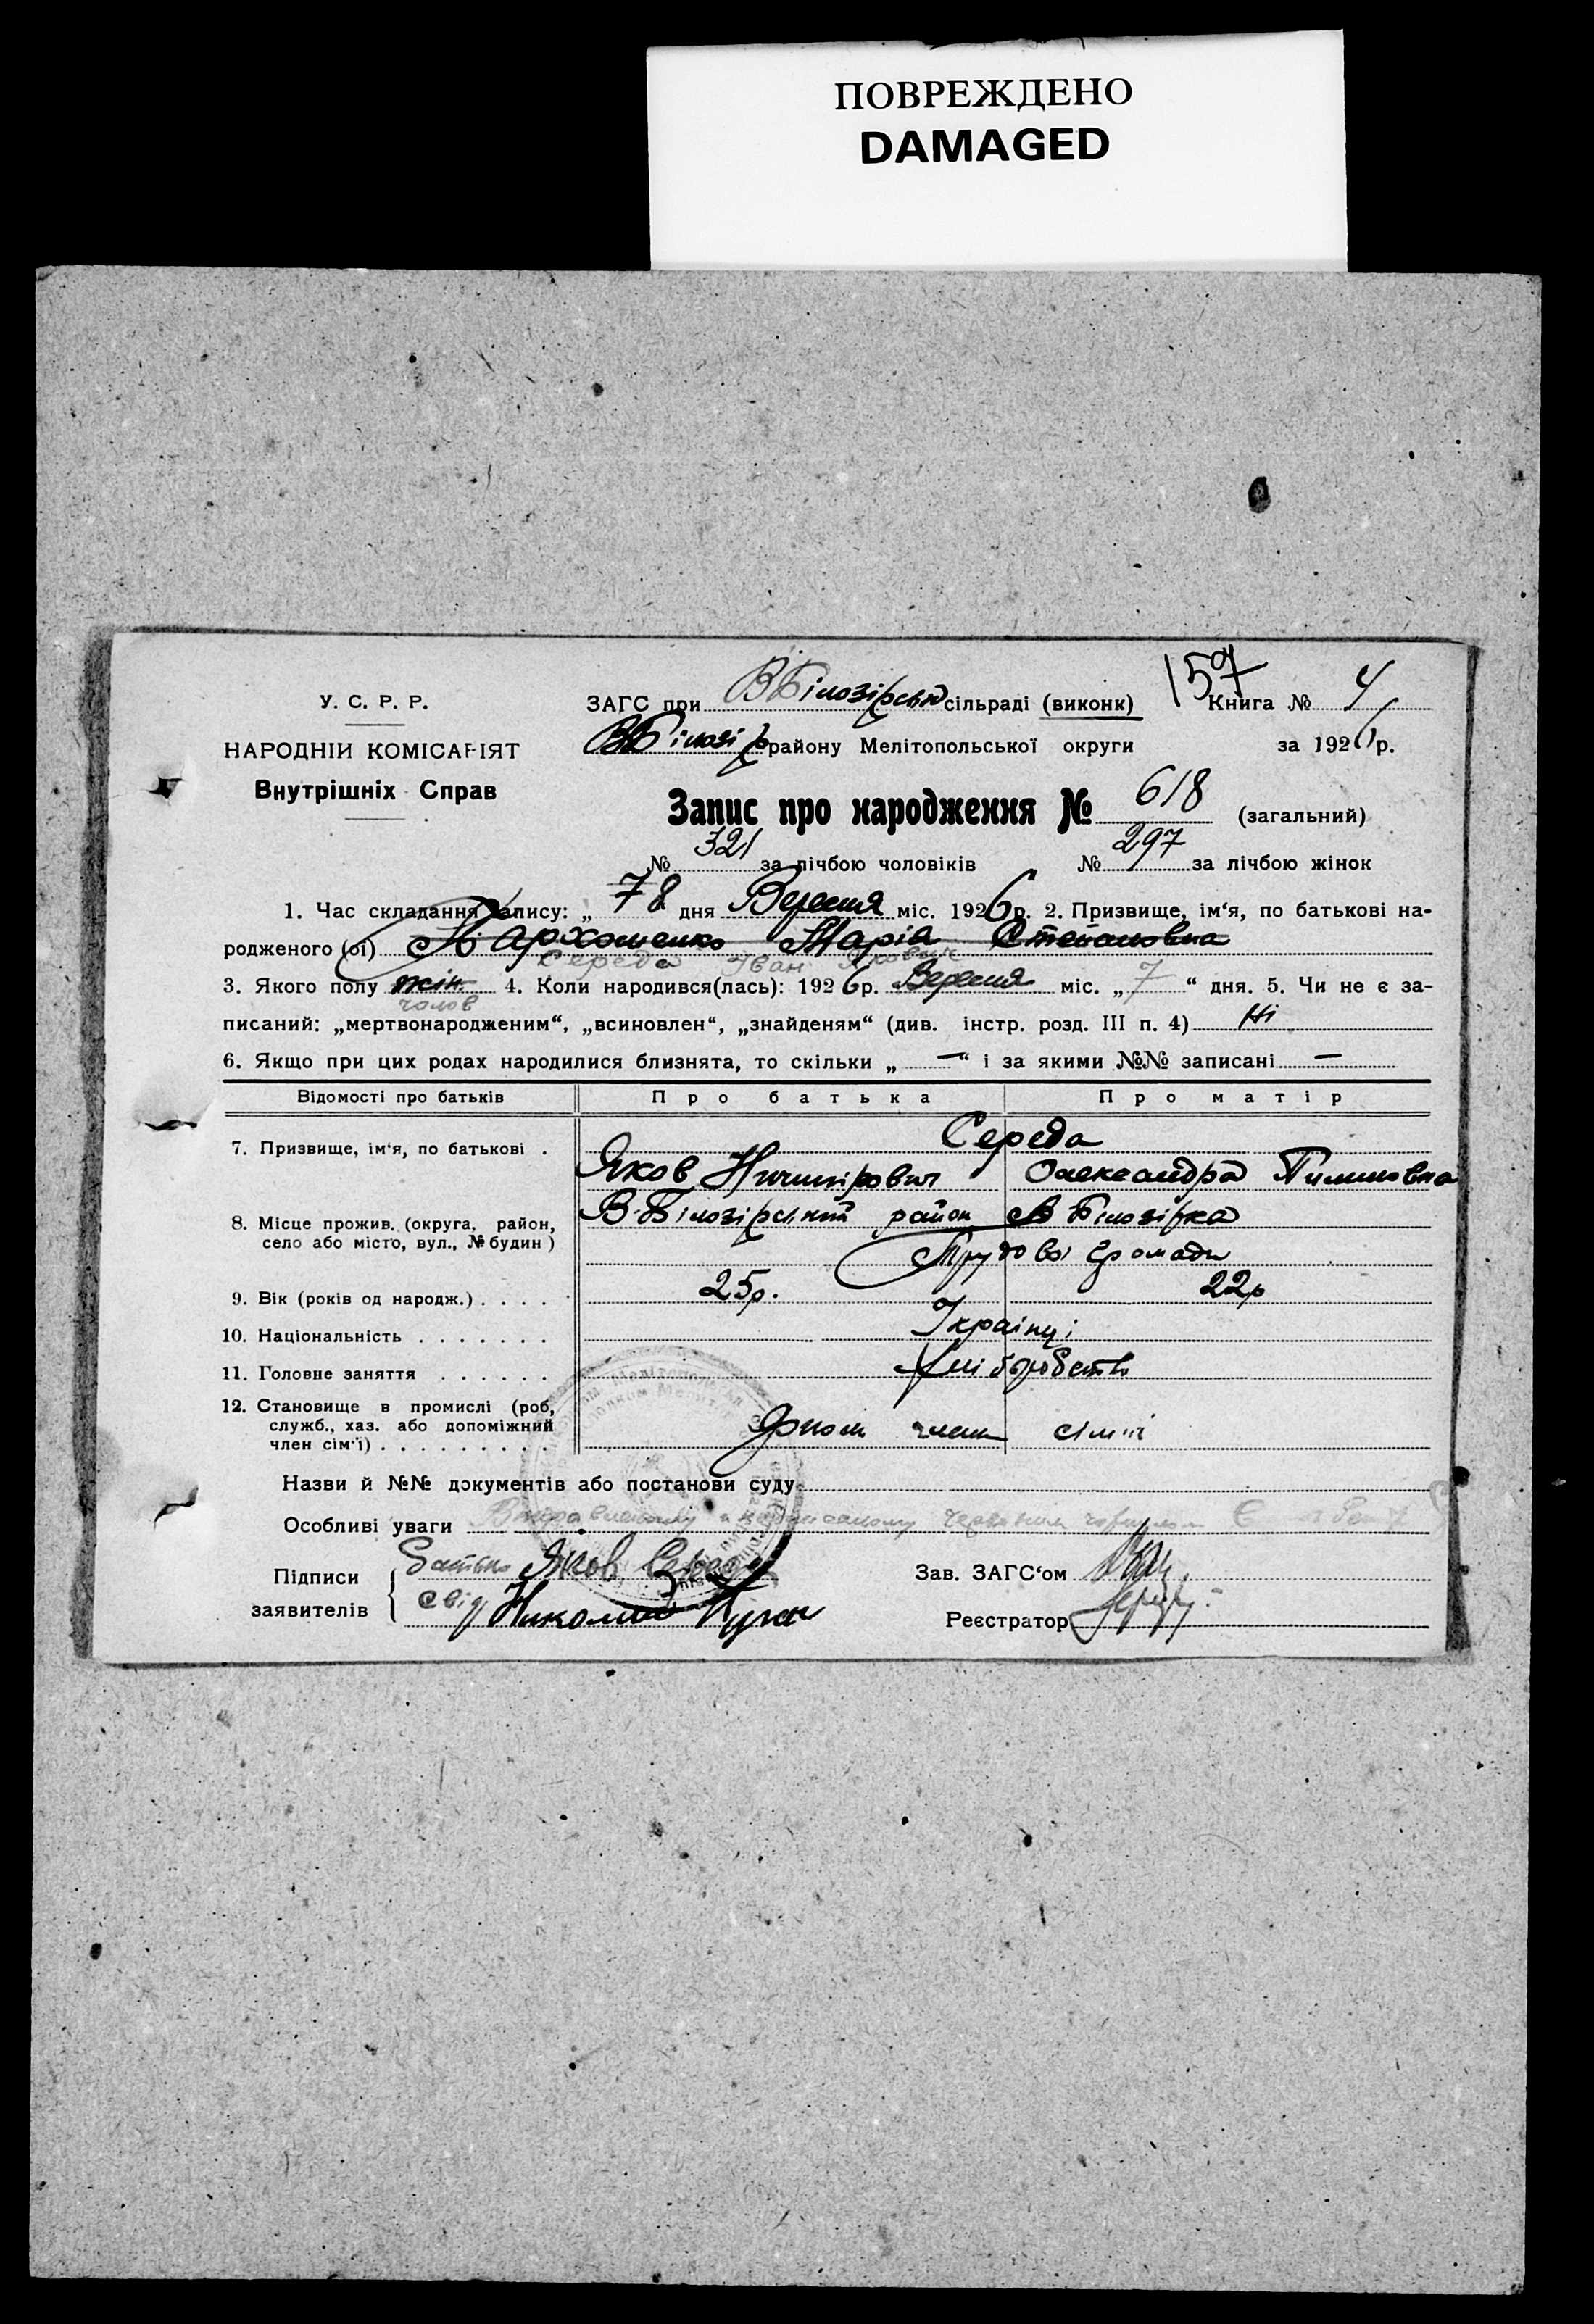 ПОВРЕЖДЕНО
DAMAGED
157
У. С. Р. Р.
НАРОДНІЙ КОМІСАРІЯТ
Внутрішніх Справ
ЗАГС при В Білозірській сільраді (виконк) Книга № 4
ВБілозір району Мелітопольської округи за 1926 р.
Запис про народження № 618 (загальний)
№ 321 за лічбою чоловіків № 297 за лічбою жінок
1. Час складання запису: „ 7 8 дня Вересня міс. 1926 р. 2. Призвище, ім‘я, по батькові на-
родженого (ої) Пархоменко Марія Степановна
Середа Іван Якович
3. Якого полу жін. 4. Коли народився(лась): 1926 р. Вересня міс. „ 7 “ дня. 5. Чи не є за-
чолов
писаний: „мертвонародженим“, „всиновлен“, „знайденям“ (див. інстр. розд. III п. 4) Ні
6. Якщо при цих родах народилися близнята, то скільки „ — “ і за якими №№ записані —
Відомості про батьків Про батька Про матір
7. Призвище, ім‘я, по батькові . Середа
Яков Ничипірович Олександра Тимиховна
8. Місце прожив. (округа, район, В-Білозірський район В Білозірка
село або місто, вул., № будин) Трудової Громади
9. Вік (років од народж.) . . . . 25р. 22р
10. Національність . . . . . . . Українці
11. Головне заняття . . . . . . Хліборобство
12. Становище в промислі (роб,
служб., хаз. або допоміжний член сім'ї
член сім‘ї) . . . . . . . . .
Назви й №№ документів або постанови суду
Особливі уваги
Підписи батько Яков Середа Зав. ЗАГС‘ом
заявителів свід Николай Реєстратор